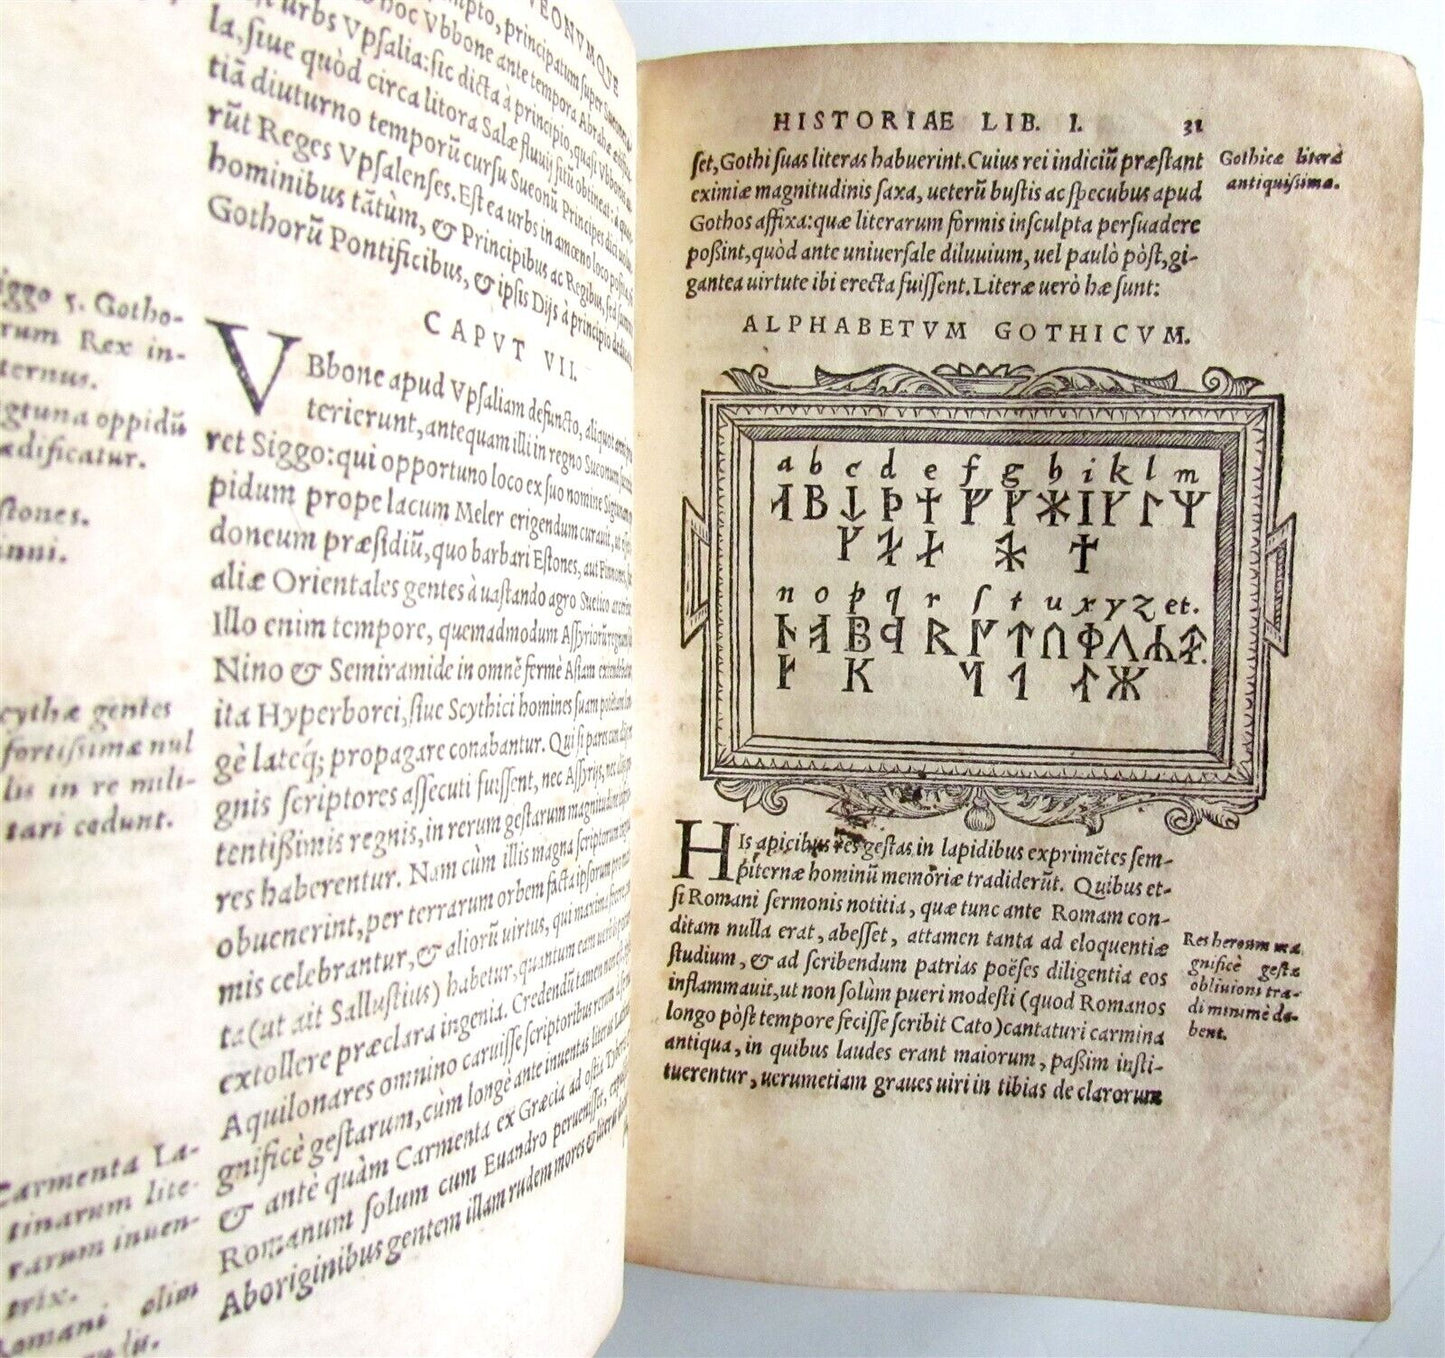 VEONVMQVE
mpto, principatum super
urbs Vpſalia: ſic dicta à principio, quaſi Vbbonis
hoc Vbbone ante tempora Abrahæ
la, ſiue quòd circa litora Salæ fluuij ſitũ obtineat: à
tiã diuturno temporũ curſu Sueonũ Principes dici
rũt Reges Vpſalenſes. Eſt ea urbs in amœno loco poſita,
hominibus tãtùm, & Principibus ac Regibus, ſed
Gothorũ Pontificibus, & ipſis Dijs à principio
CAPVT VII.
VBbone apud Vpſaliam defuncto, aliquot
terierunt, antequam illi in regno Sueonum
ret Siggo: qui opportuno loco ex ſuo nomine
pidum prope lacum Meler erigendum curauit, ut
doneum præſidiũ, quo barbari Eſtones, aut
aliæ Orientales gentes à uaſtando agro Suetico
Illo enim tempore, quemadmodum Aſſyriorũ
Nino & Semiramide in omnẽ fermè Aſiam
ita Hyperborei, ſiue Scythici homines ſuam
gè lateq́; propagare conabantur. Qui ſi pares
gnis ſcriptores aſſecuti fuiſſent, nec Aſſyrijs, nec
tentißimis regnis, in rerum geſtarum magnitudine
res haberentur. Nam cùm illis magna ſcriptorum
obuenerint, per terrarum orbem facta ipſorum pro
mis celebrantur, & aliorũ uirtus, qui maxima
ta (ut ait Salluſtius) habetur, quantum eam
extollere præclara ingenia. Credendũ tamen non eſt
Aquilonares omnino caruiſſe ſcriptoribus rerum
gnificè geſtarum, cùm longè ante inuentas literas
& antè quàm Carmenta ex Græcia ad oſtia
Romanum ſolum cum Euandro perueniſſet,
Aboriginibus gentem illam rudem mores & literas
iggo 5. Gotho-
rum Rex in-
ternus.
gtuna oppidũ
ædificatur.
ſtones.
inni.
cythæ gentes
fortiſſimæ nul
lis in re mili-
tari cedunt.
Carmenta La-
tinarum lite-
rarum inuen-
trix.
Romani olim
HISTORIAE LIB. I. 31
ſet, Gothi ſuas literas habuerint. Cuius rei indiciũ præſtant
eximiæ magnitudinis ſaxa, ueterũ buſtis ac ſpecubus apud
Gothos affixa: quæ literarum formis inſculpta perſuadere
poßint, quòd ante uniuerſale diluuium, uel paulò pòſt, gi-
gantea uirtute ibi erecta fuiſſent. Literæ uerò hæ ſunt:
Gothicæ literæ
antiquiſſimæ.
ALPHABETVM GOTHICVM.
a b c d e f g h i k l m
n o p q r ſ t u x y z et.
HIs apicibus res geſtas in lapidibus exprimẽtes ſem-
piternæ hominũ memoriæ tradiderũt. Quibus et-
ſi Romani ſermonis notitia, quæ tunc ante Romam con-
ditam nulla erat, abeſſet, attamen tanta ad eloquentiæ
ſtudium, & ad ſcribendum patrias poëſes diligentia eos
inflammauit, ut non ſolùm pueri modeſti (quod Romanos
longo pòſt tempore feciſſe ſcribit Cato) cantaturi carmina
antiqua, in quibus laudes erant maiorum, paßim inſti-
tuerentur, uerumetiam graues uiri in tibias de clarorum
Res heroum ma
gnificè geſtæ
obliuioni tra-
di minimè de-
bent.